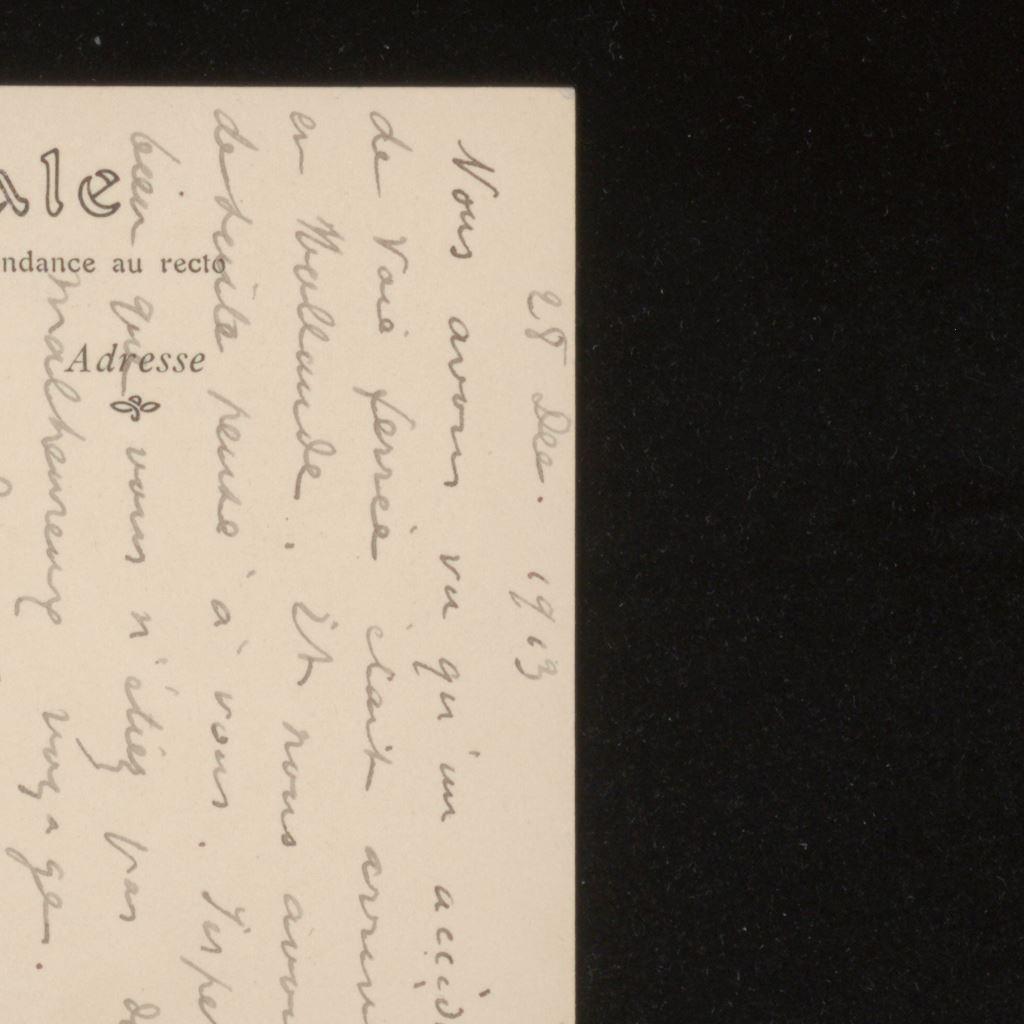 ale
ndance au recto
Adresse
28 Dec. 1913
Nous avons vu qu'un accid
de Voie ferrée était arrivé
en Hollande. Et nous avon
de suite pensé à vous. J'espè
bien que vous n'étiez pas d
malheureux voyage.